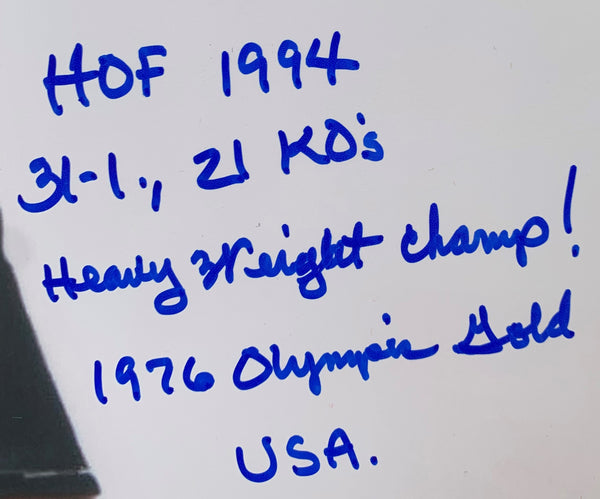 HOF 1994
31-1., 21 KO's
Heavy Weight Champ!
1976 Olympic Gold
USA.